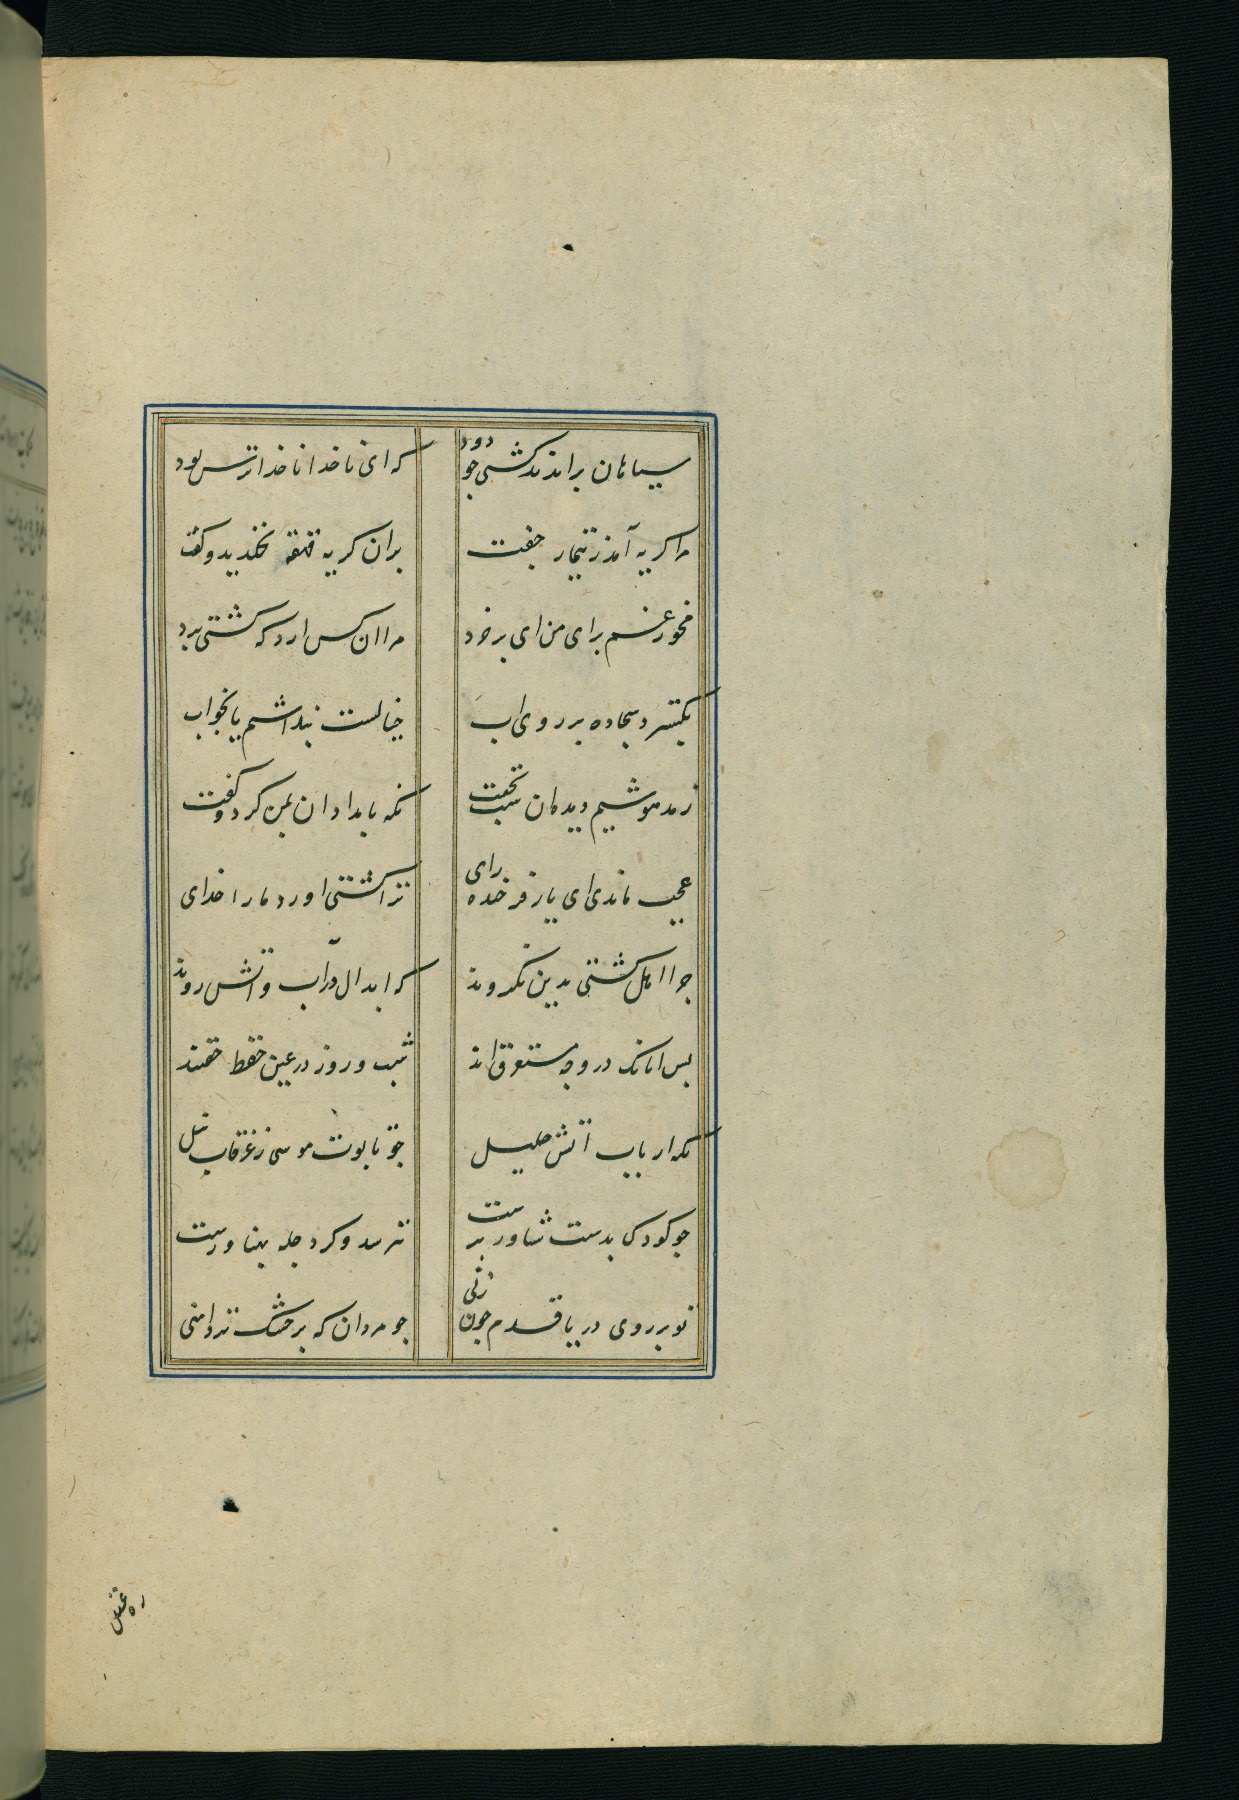 سیاهان براندند کشتی جو دود
که ای ناخدا ناخدا ترس بود
مرا کریه آمد ز تیمار جفت
بران کریه قهقه بخندید و کفت
مخور غم برای من ای بر خرد
مرا ان کس ارد که کشتی برد
بکسترد سجاده بر روی اب
خیالست پنداشتم یا بخواب
ز مدهوشیم دیده ان شب نخفت
نکه بامدادان بمن کرد و کفت
عجب ماندی ای یار فرخنده رای
ترا کشتی اورد ما را خدای
جرا اهل کشتی بدین نکروند
که ابدال در آب و اتش روند
بس انانک در وجد مستغرق اند
شب و روز در عین حفظ حقند
نکه دارد باب اتش خلیل
جو تابوت موسی ز غرقاب نیل
جو کودک بدست شناور برست
نترسد و کر دجله پهناورست
تو بر روی دریا قدم جون زنی
جو مردان که بر خشک تر دامنی
ره عقل